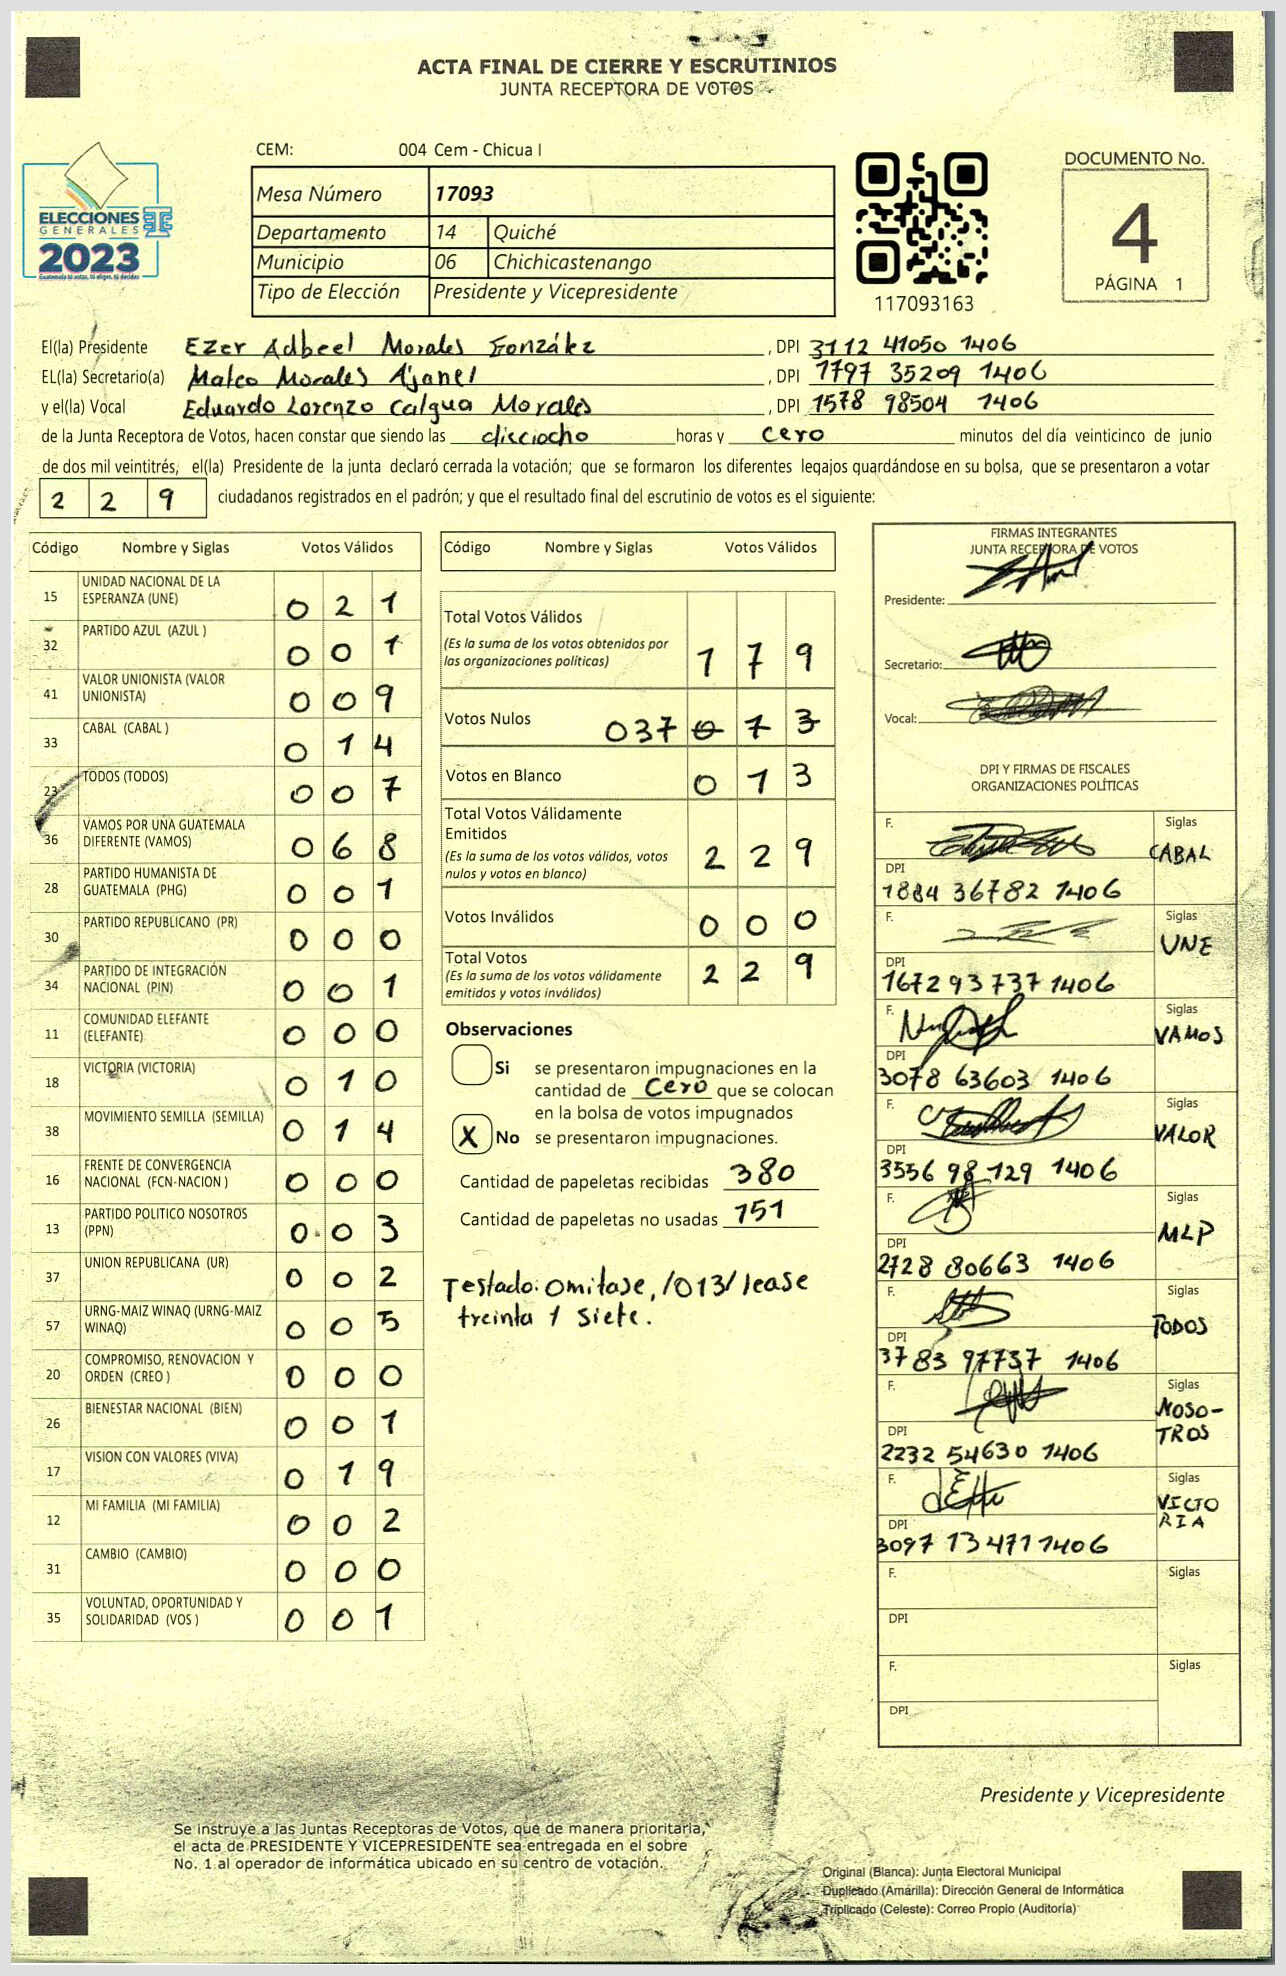 ACTA FINAL DE CIERRE Y ESCRUTINIOS
JUNTA RECEPTORA DE VOTOS
CEM: 004 Cem - Chicua I
ELECCIONES
GENERALES
2023
Mesa Número 17093
Departamento 14 Quiché
Municipio 06 Chichicastenango
Tipo de Elección Presidente y Vicepresidente
117093163
DOCUMENTO No.
4
PÁGINA 1
El(la) Presidente Ezer Adbeel Morales González, DPI 3112 41050 1406
EL(la) Secretario(a) Mateo Morales Ajanel, DPI 1797 35209 1406
y el(la) Vocal Eduardo Lorenzo Calgua Morales, DPI 1578 98504 1406
de la Junta Receptora de Votos, hacen constar que siendo las dieciocho horas y cero minutos del día veinticinco de junio
de dos mil veintitrés, el(la) Presidente de la junta declaró cerrada la votación; que se formaron los diferentes legajos guardándose en su bolsa, que se presentaron a votar
2 2 9 ciudadanos registrados en el padrón; y que el resultado final del escrutinio de votos es el siguiente:
Código Nombre y Siglas Votos Válidos
15 UNIDAD NACIONAL DE LA ESPERANZA (UNE) 0 2 1
32 PARTIDO AZUL (AZUL ) 0 0 1
41 VALOR UNIONISTA (VALOR UNIONISTA) 0 0 9
33 CABAL (CABAL ) 0 1 4
23 TODOS (TODOS) 0 0 7
36 VAMOS POR UNA GUATEMALA DIFERENTE (VAMOS) 0 6 8
28 PARTIDO HUMANISTA DE GUATEMALA (PHG) 0 0 1
30 PARTIDO REPUBLICANO (PR) 0 0 0
34 PARTIDO DE INTEGRACIÓN NACIONAL (PIN) 0 0 1
11 COMUNIDAD ELEFANTE (ELEFANTE) 0 0 0
18 VICTORIA (VICTORIA) 0 1 0
38 MOVIMIENTO SEMILLA (SEMILLA) 0 1 4
16 FRENTE DE CONVERGENCIA NACIONAL (FCN-NACION ) 0 0 0
13 PARTIDO POLITICO NOSOTROS (PPN) 0 0 3
37 UNION REPUBLICANA (UR) 0 0 2
57 URNG-MAIZ WINAQ (URNG-MAIZ WINAQ) 0 0 5
20 COMPROMISO, RENOVACION Y ORDEN (CREO ) 0 0 0
26 BIENESTAR NACIONAL (BIEN) 0 0 1
17 VISION CON VALORES (VIVA) 0 1 9
12 MI FAMILIA (MI FAMILIA) 0 0 2
31 CAMBIO (CAMBIO) 0 0 0
35 VOLUNTAD, OPORTUNIDAD Y SOLIDARIDAD (VOS ) 0 0 1
Código Nombre y Siglas Votos Válidos
Total Votos Válidos
(Es la suma de los votos obtenidos por las organizaciones políticas) 1 7 9
Votos Nulos 037 0 7 3
Votos en Blanco 0 1 3
Total Votos Válidamente Emitidos
(Es la suma de los votos válidos, votos nulos y votos en blanco) 2 2 9
Votos Inválidos 0 0 0
Total Votos
(Es la suma de los votos válidamente emitidos y votos inválidos) 2 2 9
Observaciones
Si se presentaron impugnaciones en la
cantidad de cero que se colocan
en la bolsa de votos impugnados
X No se presentaron impugnaciones.
Cantidad de papeletas recibidas 380
Cantidad de papeletas no usadas 151
Testado: Omitase, /013/ lease
treinta y siete.
FIRMAS INTEGRANTES
JUNTA RECEPTORA DE VOTOS
Presidente:
Secretario:
Vocal:
DPI Y FIRMAS DE FISCALES
ORGANIZACIONES POLÍTICAS
F. Siglas CABAL
DPI 1884 36782 1406
F. Siglas UNE
DPI 1672 93737 1406
F. Siglas VAMOS
DPI 3078 63603 1406
F. Siglas VALOR
DPI 3556 98129 1406
F. Siglas MLP
DPI 2728 80663 1406
F. Siglas TODOS
DPI 3783 97737 1406
F. Siglas NOSO-
TROS
DPI 2232 54630 1406
F. Siglas VICTO
RIA
DPI 3097 13471 1406
F. Siglas
DPI
F. Siglas
DPI
Presidente y Vicepresidente
Se instruye a las Juntas Receptoras de Votos, que de manera prioritaria,
el acta de PRESIDENTE Y VICEPRESIDENTE sea entregada en el sobre
No. 1 al operador de informática ubicado en su centro de votación.
Original (Blanca): Junta Electoral Municipal
Duplicado (Amarilla): Dirección General de Informática
Triplicado (Celeste): Correo Propio (Auditoria)